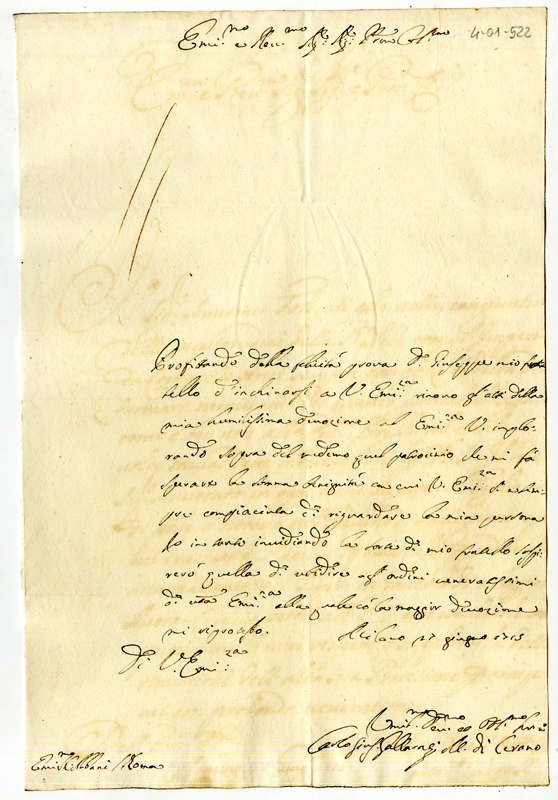 Emi.mo e Rev.mo Sig.re Sig.re Pron Col.mo
4-01-522
Profittando della felicità prova D. Giuseppe mio fra
tello d'inchinarsi a V. Emi.za rinovo gl'atti della
mia humilissima divozione al Emi.za V. implo-
rando sopra del medemo quel patrocinio che mi fà
sperare la somma benignità con cui V. Emi.za si è sem-
pre compiaciuta di riguardare la mia persona
Io in tanto invidiando la sorte di mio fratello sospi-
rerò quella di ubidire agl'ordini veneratissimi
di vra Emi.za alla quale cò la maggior divozione
mi riprotesto. Milano 17 giugno
Di V. Emi.za
Umil.mo Dev.mo ed Obl.mo
Carlo di Cerano
Emi Albani Roma